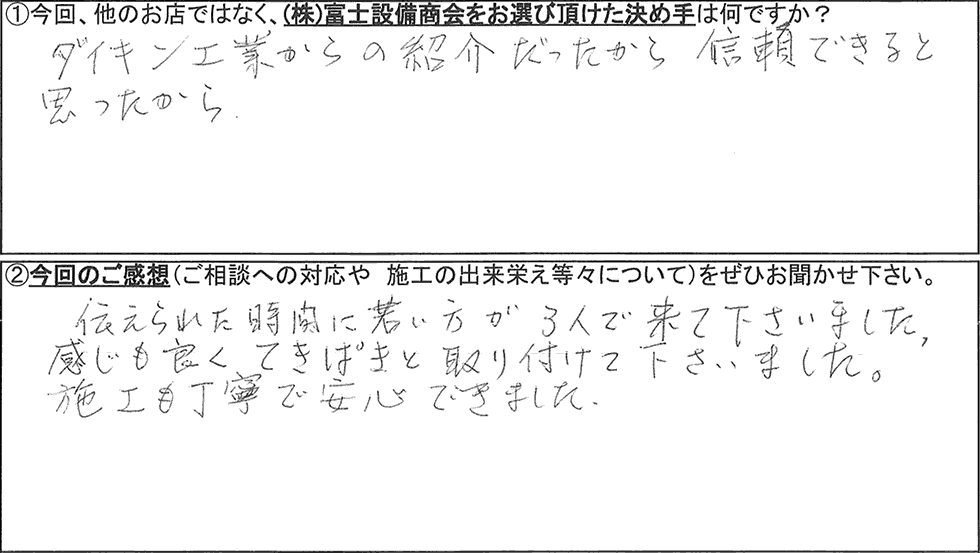 ①今回、他のお店ではなく、(株)富士設備商会をお選び頂けた決め手は何ですか？
ダイキン工業からの紹介だったから 信頼できると
思ったから.
②今回のご感想(ご相談への対応や 施工の出来栄え等々について)をぜひお聞かせ下さい。
伝えられた時間に若い方が3人で来て下さいました,
感じも良くてきぱきと取り付けて下さいました。
施工も丁寧で安心できました.